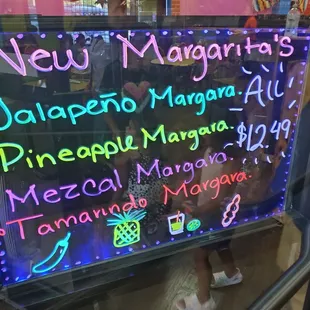 New Margarita's
Jalapeño Margara.
Pineapple Margara.
Mezcal Margara.
Tamarindo Margara.
All
$12.49